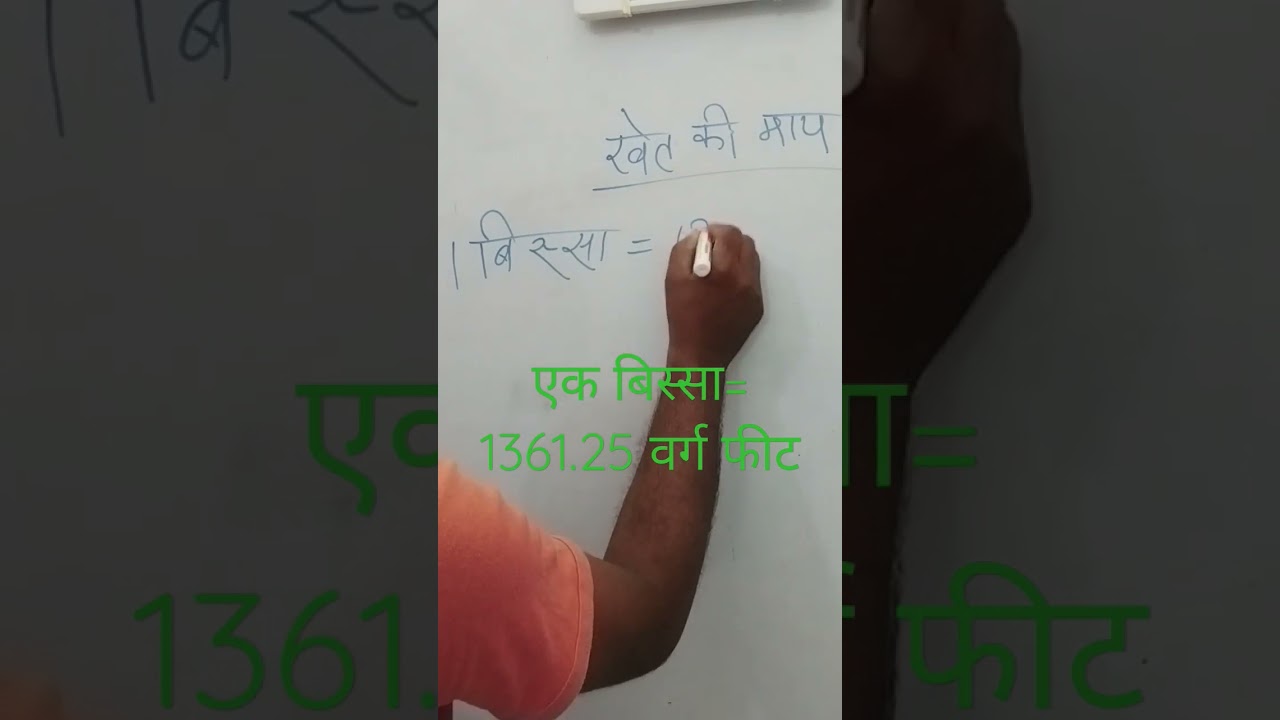 खेत की माप
1 बिस्सा =
एक बिस्सा=
1361.25 वर्ग फीट